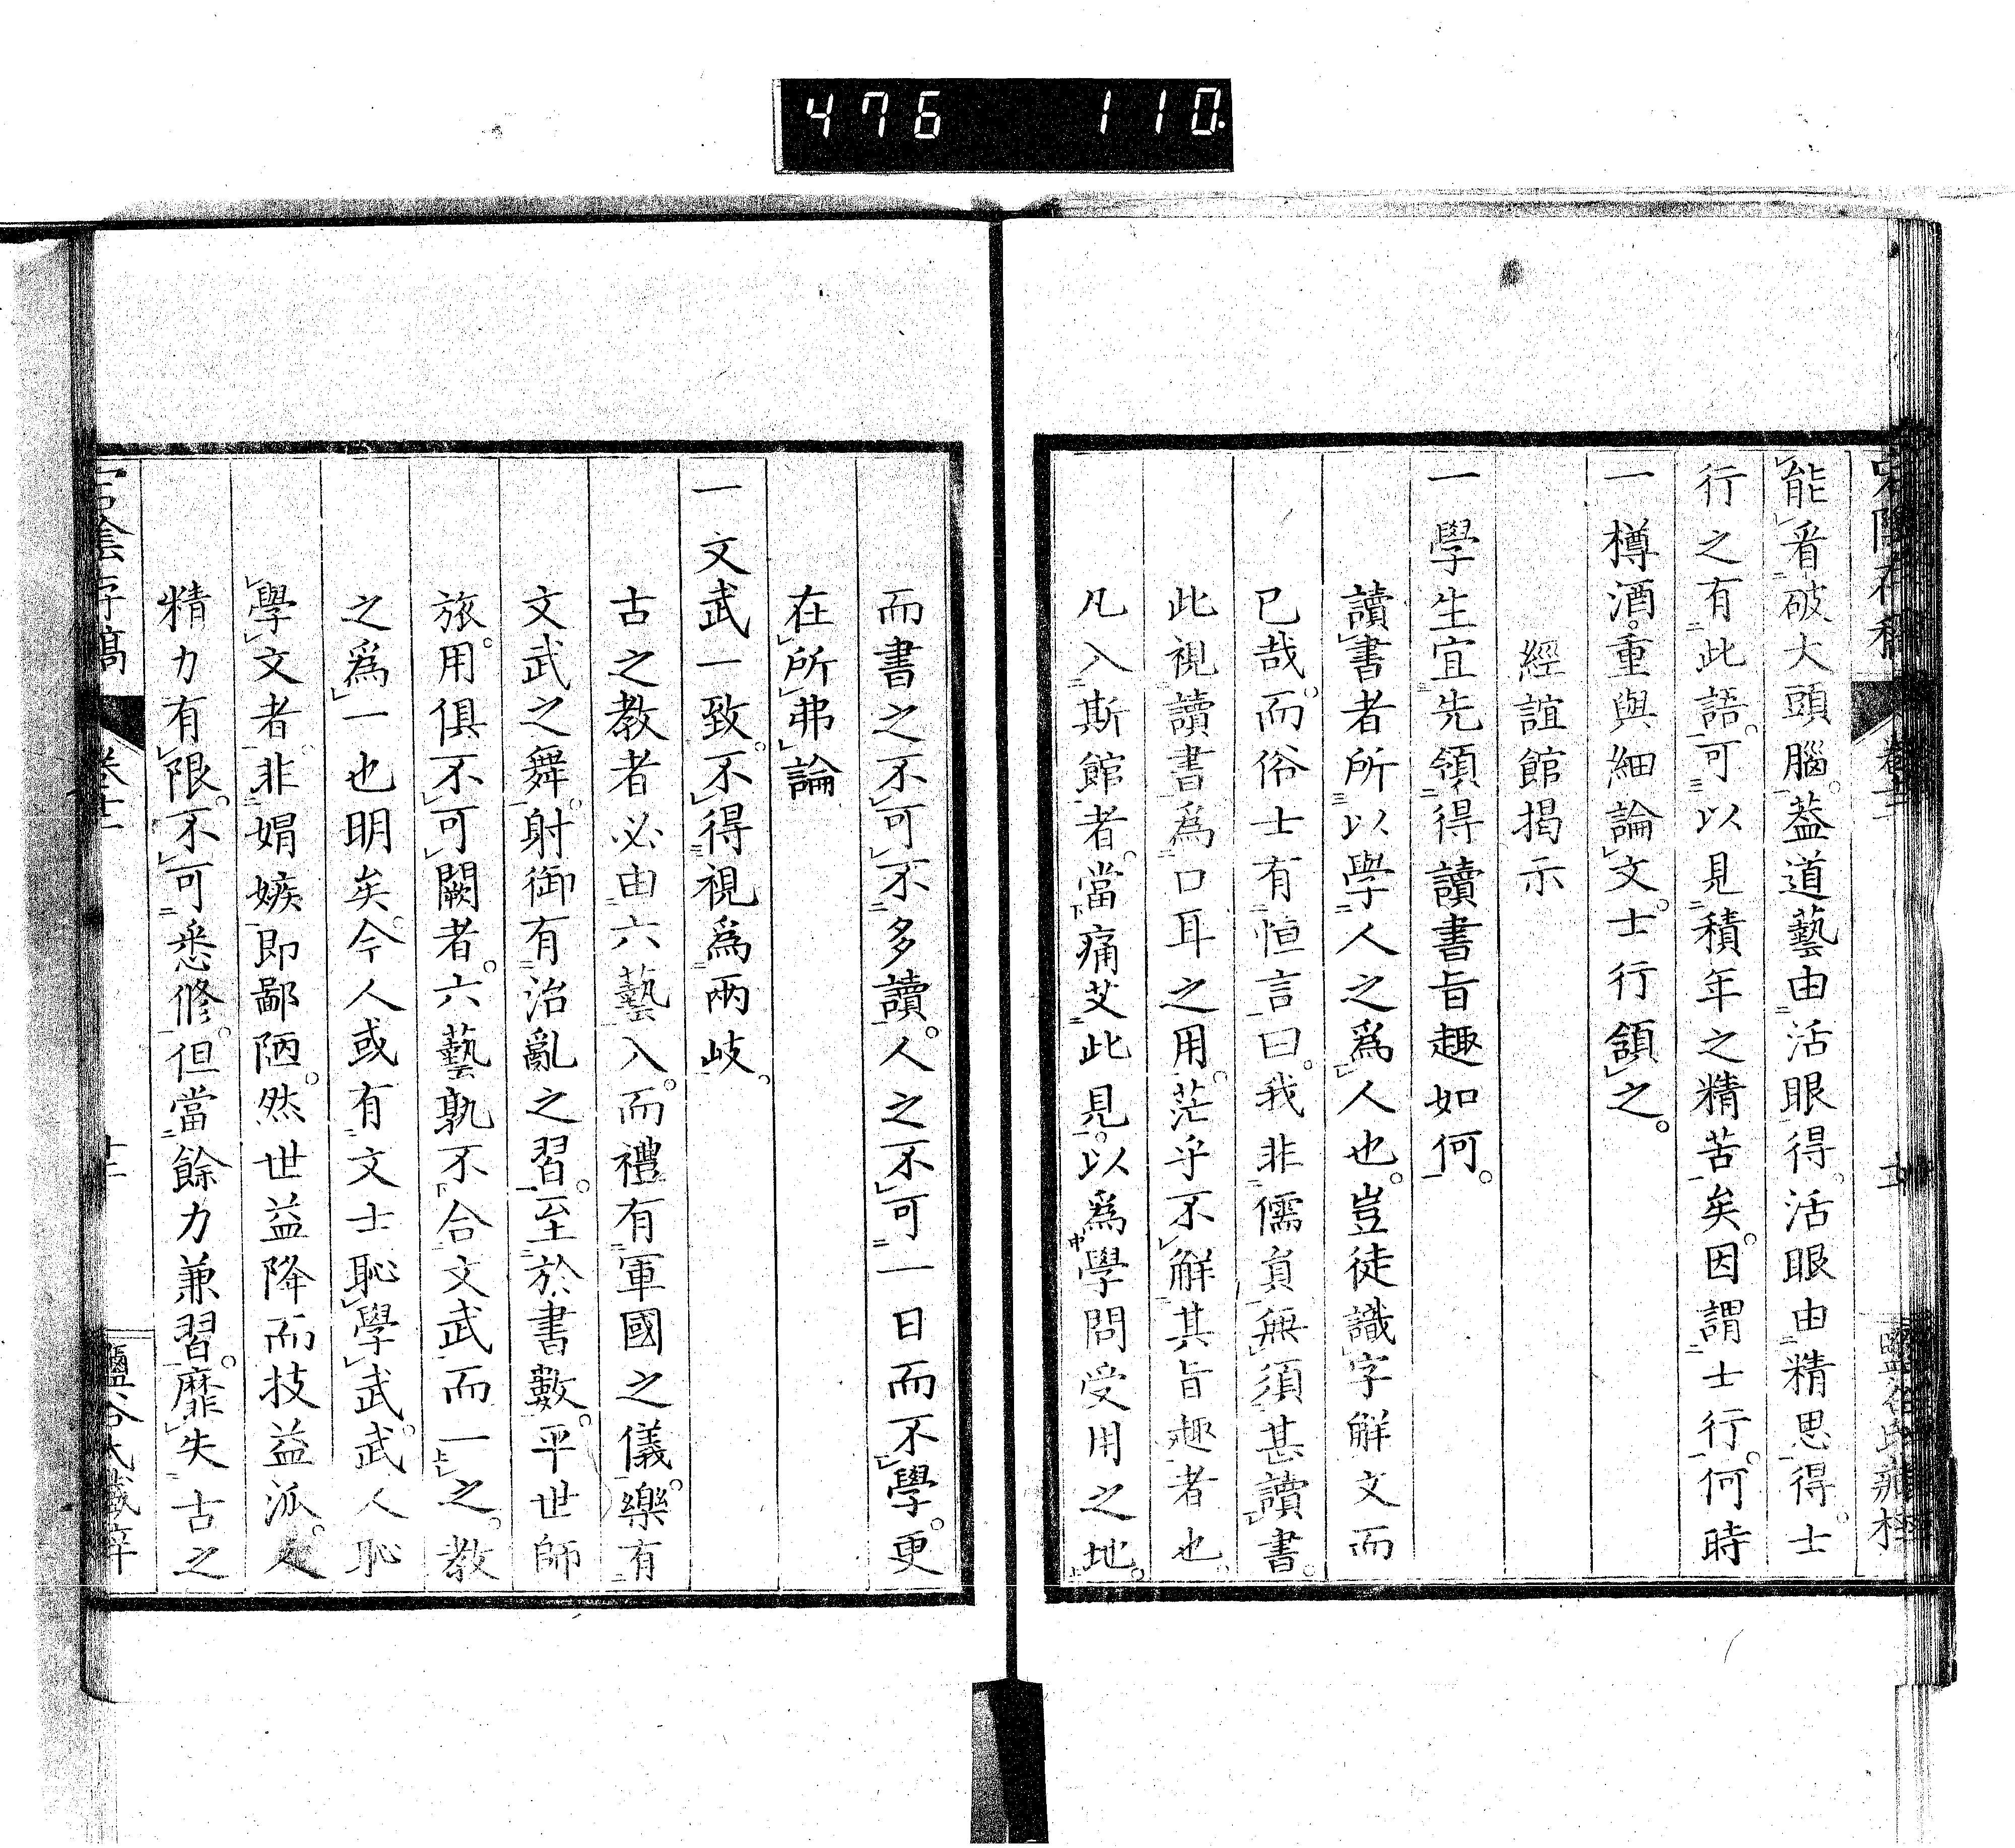 476 110.
能看破大頭腦。蓋道藝由活眼得。活眼由精思得。士
行之有此語。可以見積年之精苦矣。因謂士行。何時
一樽酒。重與細論文。士行頷之。
經誼館揭示
一學生宜先領得讀書旨趣如何。
讀書者所以學人之為人也。豈徒識字解文而
已哉。而俗士有恒言曰。我非儒員。無須甚讀書。
此視讀書為口耳之用。茫乎不解其旨趣者也。
凡入斯館者。當痛艾此見。以為學問受用之地。
而書之不可不多讀。人之不可一日而不學。更
在所弗論
一文武一致。不得視為兩歧。
古之教者必由六藝入。而禮有軍國之儀。樂有
文武之舞。射御有治亂之習。至於書數。平世師
旅。用俱不可闕者。六藝孰不合文武而一之。教
之為一也明矣。今人或有文士恥學武。武人恥
學文者。非娟嫉即鄙陋。然世益降而技益派。人
精力有限。不可悉修。但當餘力兼習。靡失古之
宕陰存稿 卷十二 十二